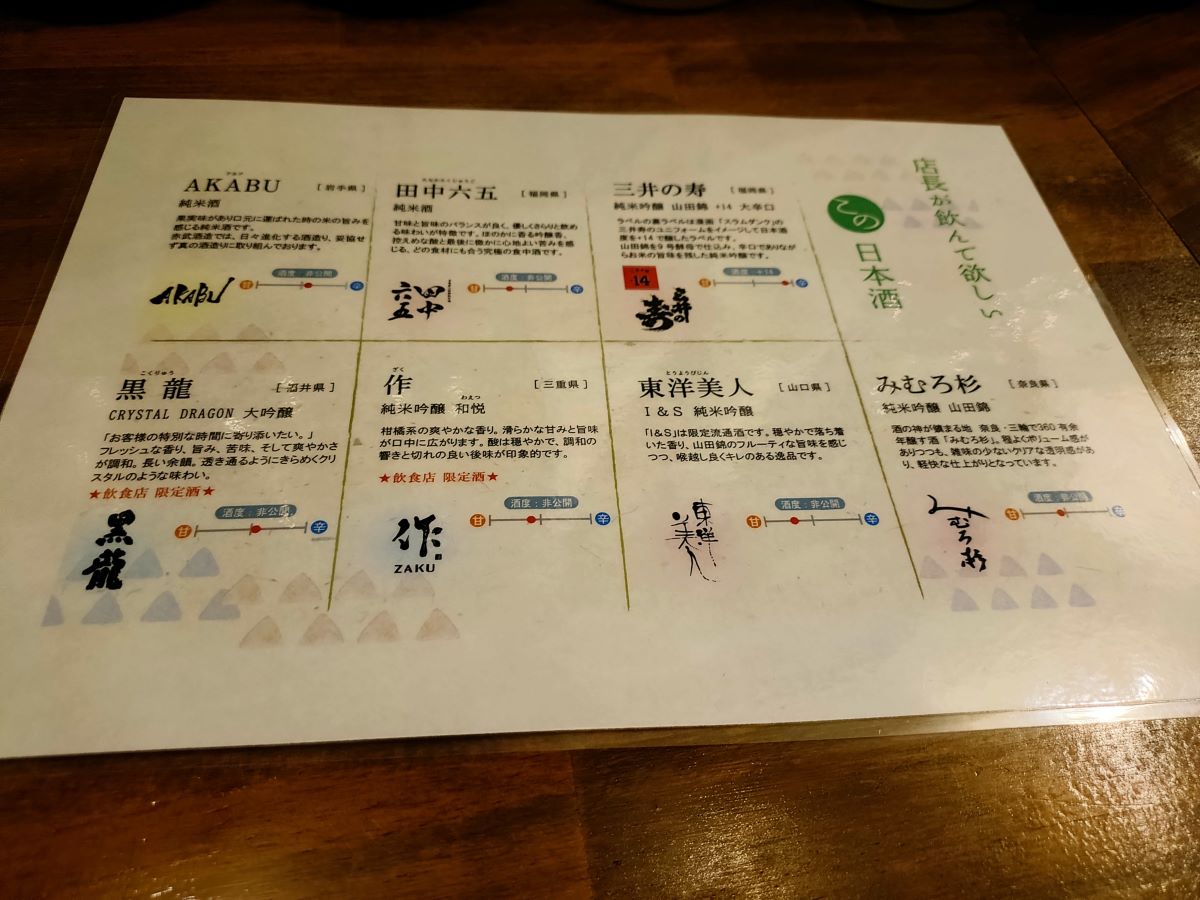 店長が飲んで欲しい
この
日本酒
アカブ
AKABU
[岩手県]
純米酒
果実味があり口元に運ばれた時の米の旨みを
感じる純米酒です。
赤武酒造では、日々進化する酒造り、妥協せ
ず真の酒造りに取り組んでおります。
酒度：非公開
甘
辛
AKABU
たなかろくじゅうご
田中六五
[福岡県]
純米酒
甘味と旨味のバランスが良く、優しくさらりと飲め
る味わいが特徴です。ほのかに香る吟醸香、
控えめな酸と最後に微かに心地よい苦みを感
じる、どの食材にも合う究極の食中酒です。
酒度：非公開
甘
辛
田中
六五
三井の寿
[福岡県]
純米吟醸 山田錦 +14 大辛口
ラベルの裏ラベルは漫画「スラムダンク」の
三井寿のユニフォームをイメージして日本酒
度を+14で醸したラベルです。
山田錦を9号酵母で仕込み、辛口でありなが
らお米の旨味を残した純米吟醸です。
酒度：+14
甘
辛
14
三井の
寿
こくりゅう
黒龍
[福井県]
CRYSTAL DRAGON 大吟醸
「お客様の特別な時間に寄り添いたい。」
フレッシュな香り、旨み、苦味、そして爽やかさ
が調和。長い余韻。透き通るようにきらめくクリ
スタルのような味わい。
★飲食店 限定酒★
酒度：非公開
甘
辛
黒龍
ざく
作
[三重県]
わえつ
純米吟醸 和悦
柑橘系の爽やかな香り。滑らかな甘みと旨味
が口中に広がります。酸は穏やかで、調和の
響きと切れの良い後味が印象的です。
★飲食店 限定酒★
酒度：非公開
甘
辛
作
ZAKU
とうようびじん
東洋美人
[山口県]
I＆S 純米吟醸
「I&S」は限定流通酒です。穏やかで落ち着
いた香り、山田錦のフルーティな旨味を感じ
つつ、喉越し良くキレのある逸品です。
酒度：非公開
甘
辛
東洋
美人
みむろ杉
[奈良県]
純米吟醸 山田錦
酒の神が鎮まる地 奈良・三輪で360有余
年醸す酒「みむろ杉」。程よくボリューム感が
ありつつも、雑味の少ないクリアな透明感があ
り、軽快な仕上がりとなっています。
酒度：非公開
甘
辛
みむろ杉